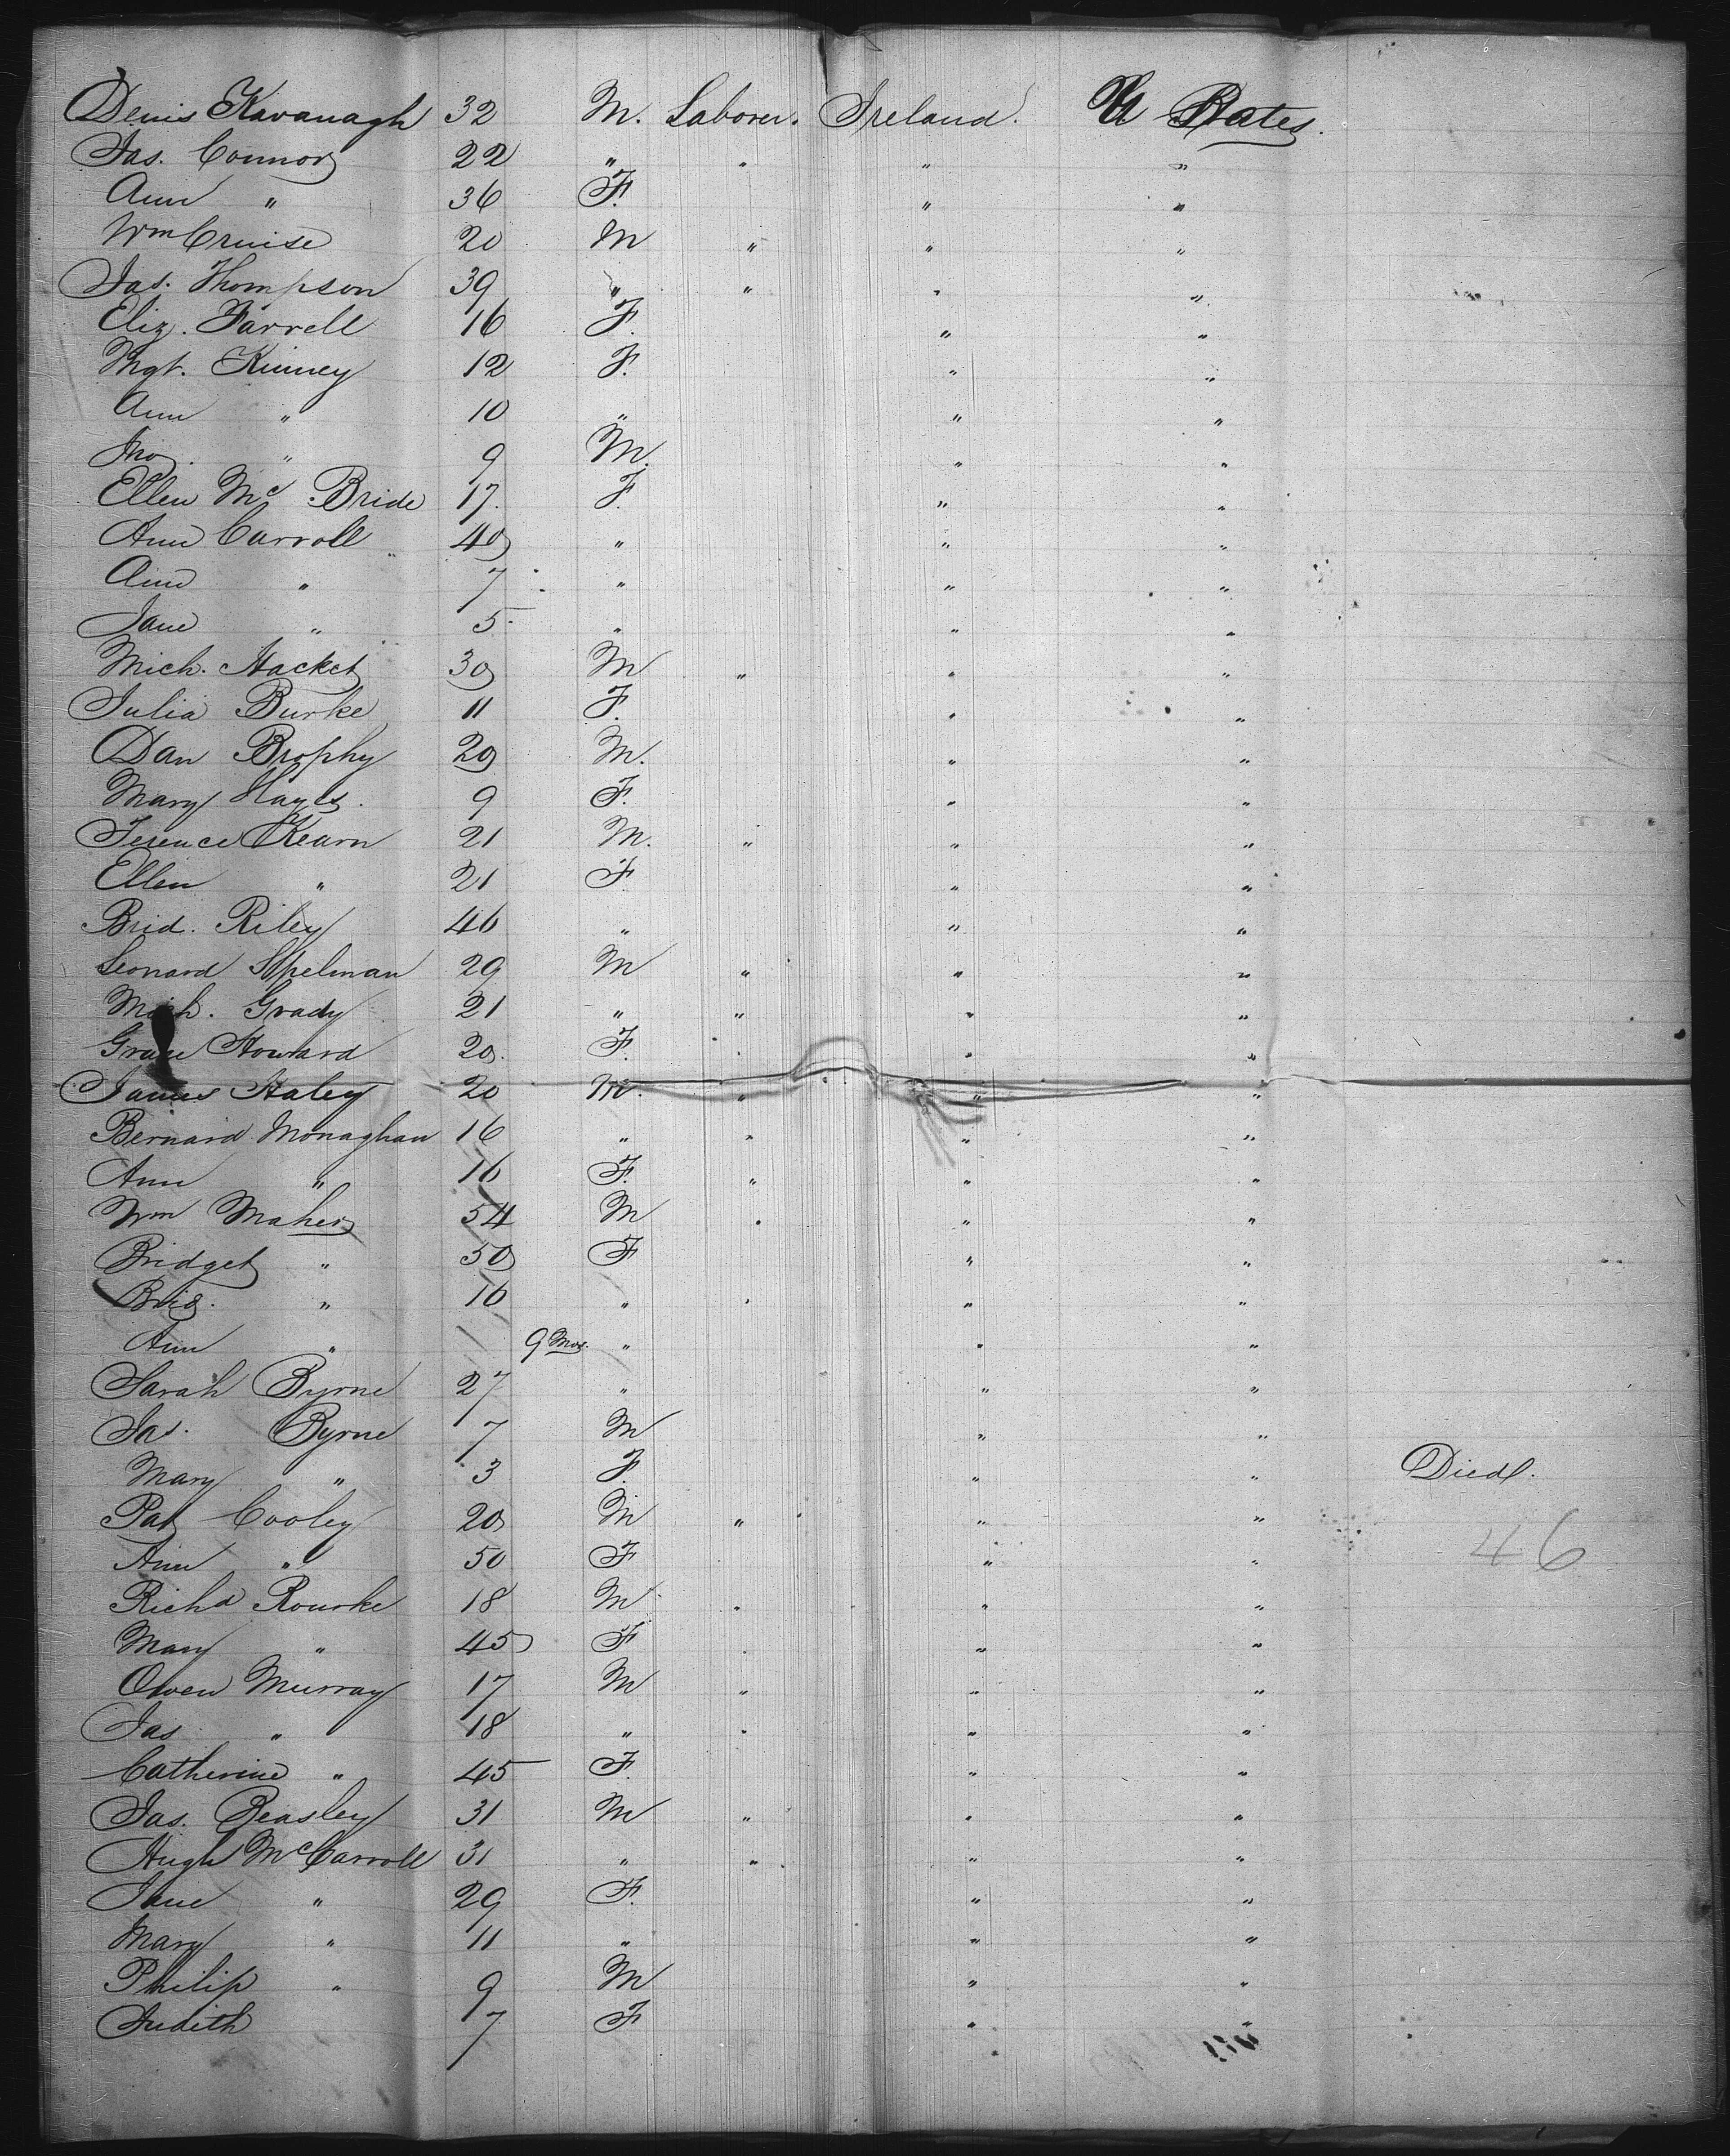 Denis Kavanagh 32 M. Laborer. Ireland. U States.
Jas. Connor 22 " " " "
Ann " 36 F. " "
Wm Cruise 20 M " " "
Jas. Thompson 39 " " " "
Eliz. Farrell 16 F. " "
Mgt. Kinney 12 F. " "
Ann " 10 " " "
Jno. " 9 M. " "
Ellen Mc Bride 17. F. " "
Ann Carroll 40 " " "
Ann " 7 " " "
Jane " 5 " " "
Mich. Hacket 30 M " " "
Julia Burke 11 F. " "
Dan Brophy 20 M. " "
Mary Hayes. 9 F. " "
Terence Kearn 21 M. " " "
Ellen " 21 F " "
Brid. Riley 46 " " "
Leonard Spelman 29 M " " "
Mich. Grady 21 " " " "
Grace Howard 20. F. " " "
James Haley 20 M. " " "
Bernard Monaghan 16 " " " "
Ann " 16 F. " " "
Wm Maher 54 M " " "
Bridget " 50 F " "
Brid. " 16 " " " "
Ann " 9 Mos. " " "
Sarah Byrne 27 " " "
Jas. Byrne 7 M " "
Mary " 3 F. " " Died.
Pat Cooley 20 M " " "
46
Ann " 50 F " "
Richd Rourke 18 M " " "
Mary " 45 F " " "
Owen Murray 17 M " " "
Jas " 18 " " " "
Catherine " 45 F. " "
Jas. Beasley 31 M " " "
Hugh McCarroll 31 " " " "
Jane " 29 F. " "
Mary " 11 " " "
Philip " 9 M " "
Judith 7 F " "